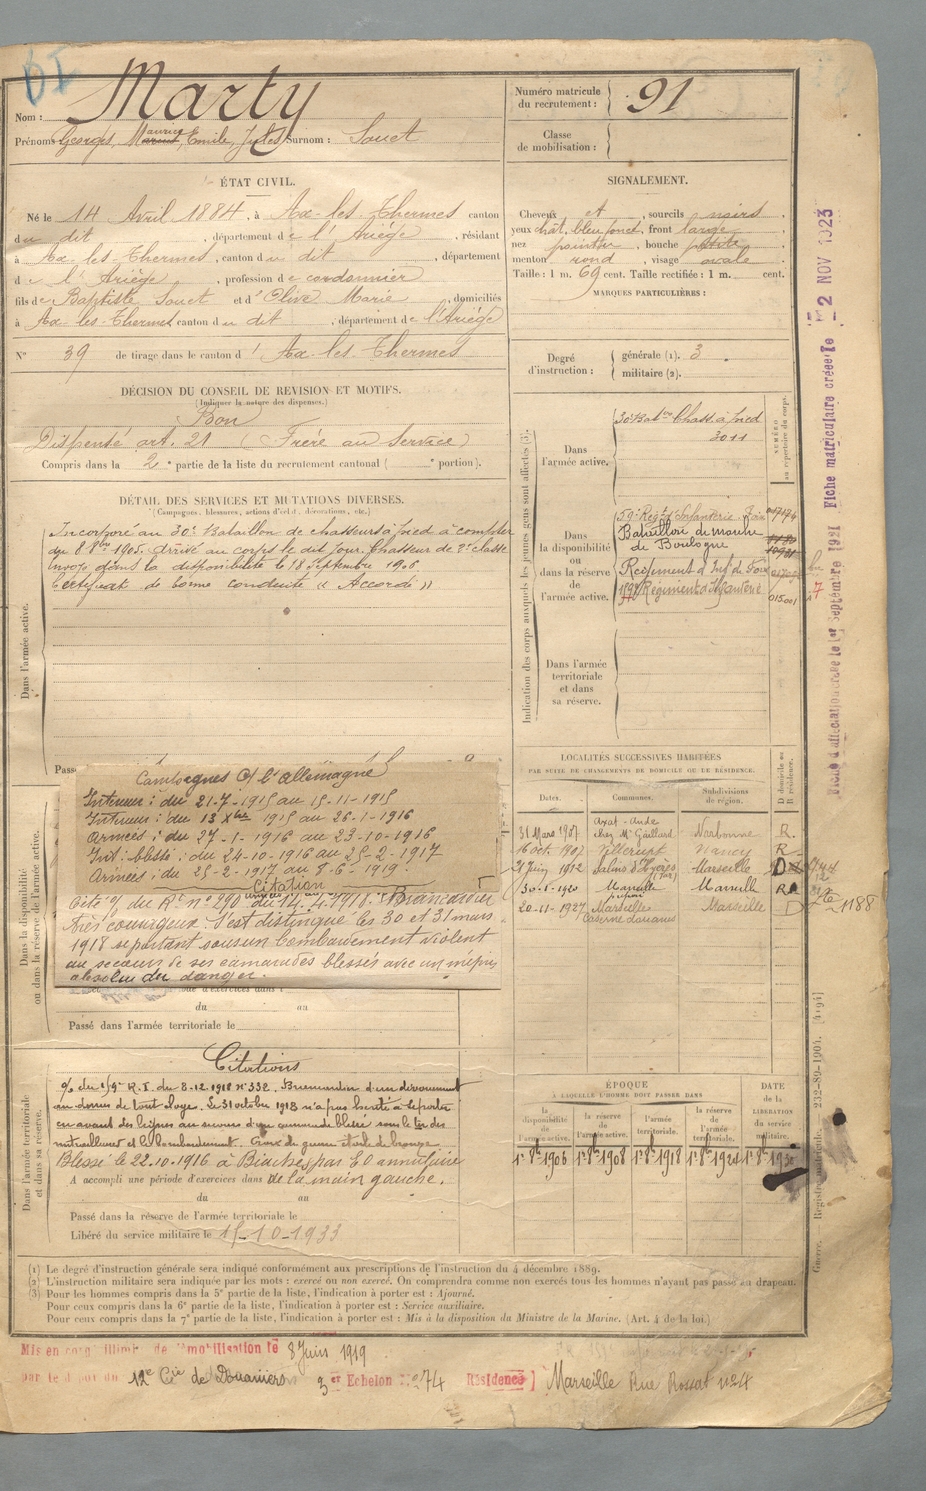 Marty
Nom :
Prénoms Georges, Maurice, Emile, Jules Surnom : Souet
Numéro matricule
du recrutement : 91
Classe
de mobilisation :
ÉTAT CIVIL.
Né le 14 Avril 1884, à Ax-les-Thermes canton
du dit, département de l'Ariége, résidant
à Ax-les-Thermes, canton du dit, département
de l'Ariége, profession de cordonnier
fils de Baptiste Souet et d'Olive Marie, domiciliés
à Ax-les-Thermes canton du dit, département de l'Ariége
N° 39 de tirage dans le canton d' Ax-les-Thermes
SIGNALEMENT.
Cheveux et, sourcils noirs
yeux chât. bleu foncé, front large
nez pointu, bouche petite
menton rond, visage ovale
Taille : 1 m. 69 cent. Taille rectifiée : 1 m. cent.
MARQUES PARTICULIÈRES :
Degré
d'instruction :
générale (1). 3.
militaire (2).
DÉCISION DU CONSEIL DE REVISION ET MOTIFS.
(Indiquer la nature des dispenses.)
Bon
Dispensé art. 21 (Frère au service)
Compris dans la 2e partie de la liste du recrutement cantonal ( e portion).
DÉTAIL DES SERVICES ET MUTATIONS DIVERSES.
(Campagnes, blessures, actions d'éclat, décorations, etc.)
Dans l'armée active.
Incorporé au 30e Bataillon de chasseurs à pied à compter
du 8 8bre 1905. Arrivé au corps le dit jour. Chasseur de 2e classe
Envoyé dans la disponibilité le 18 Septembre 1906
Certificat de bonne conduite « Accordé »
Passé
Dans la disponibilité
ou dans la réserve de l'armée active.
Campagnes C/ l'allemagne
Intérieur : du 21-7-1915 au 15-11-1915
Intérieur : du 13 Xbre 1915 au 26-1-1916
Armées : du 27-1-1916 au 23-10-1916
Int : blessé : du 24-10-1916 au 25-2-1917
Armées : du 25-2-1917 au 8-6-1919.
Citation
Cité O/ du Rt n° 290 du 14.4.1918. Brancardier
très courageux. S'est distingué les 30 et 31 mars
1918 se portant sous un bombardement violent
au secours de ses camarades blessés avec un mépris
absolu du danger.
du au
Passé dans l'armée territoriale le
Dans l'armée territoriale
et dans sa réserve.
Citations
O/ du 159e R.I. du 8-12.1918 N° 332. Brancardier d'un dévouement
au dessus de tout éloge. Le 31 octobre 1918 n'a pas hésité à se porter
en avant des lignes au secours d'un camarade blessé sous le feu des
mitrailleuses et le bombardement. Croix de guerre étoile de bronze
Blessé le 22.10.1916 à Biaches par EO annulaire
A accompli une période d'exercices dans de la main gauche.
du au
Passé dans la réserve de l'armée territoriale le
Libéré du service militaire le 15-10-1933
Indication des corps auxquels les jeunes gens sont affectés (3).
NUMÉRO
au répertoire du corps.
Dans
l'armée active.
30e Baton Chass. à pied
3011
Dans
la disponibilité
ou
dans la réserve
de l'armée active.
59e Régt d'Infanterie. Foix
Bataillon de marche
de Boulogne
Régiment d'Inf de Foix
159e Régiment d'Infanterie
015.001
Dans l'armée
territoriale
et dans
sa réserve.
LOCALITÉS SUCCESSIVES HABITÉES
PAR SUITE DE CHANGEMENTS DE DOMICILE OU DE RÉSIDENCE.
Dates. Communes. Subdivisions de région. D domicile ou R résidence.
31 Mars 1907 Axat-Aude chez Mr Gaillard Narbonne R.
16 oct. 1907 Nancy R
21 Juin 1912 Salins d'Hyères (Var) Marseille D
30-1-1920 Marseille Marseille R
20-11-1927 Marseille Caserne douanes Marseille D 1188
ÉPOQUE
À LAQUELLE L'HOMME DOIT PASSER DANS
la disponibilité de l'armée active. la réserve de l'armée active. l'armée territoriale. la réserve de l'armée territoriale.
DATE de la LIBÉRATION du service militaire.
1er 8bre 1906 1er 8bre 1908 1er 8bre 1918 1er 8bre 1924 1er 8bre 1930
(1) Le degré d'instruction générale sera indiqué conformément aux prescriptions de l'instruction du 4 décembre 1889.
(2) L'instruction militaire sera indiquée par les mots : exercé ou non exercé. On comprendra comme non exercés tous les hommes n'ayant pas passé au drapeau.
(3) Pour les hommes compris dans la 5e partie de la liste, l'indication à porter est : Ajourné.
Pour ceux compris dans la 6e partie de la liste, l'indication à porter est : Service auxiliaire.
Pour ceux compris dans la 7e partie de la liste, l'indication à porter est : Mis à la disposition du Ministre de la Marine. (Art. 4 de la loi.)
Mis en congé illimité de démobilisation le 8 Juin 1919
par le dépôt du 12e Cie de Douaniers 3er Echelon N° 74 Résidence] Marseille Rue Rossat n° 4
Fiche matriculaire créée le 2 NOV 1923
Fiche d'affectation créée le 1er Septembre 1927
Guerre. Registre matricules. 232-89-1904. [4194]